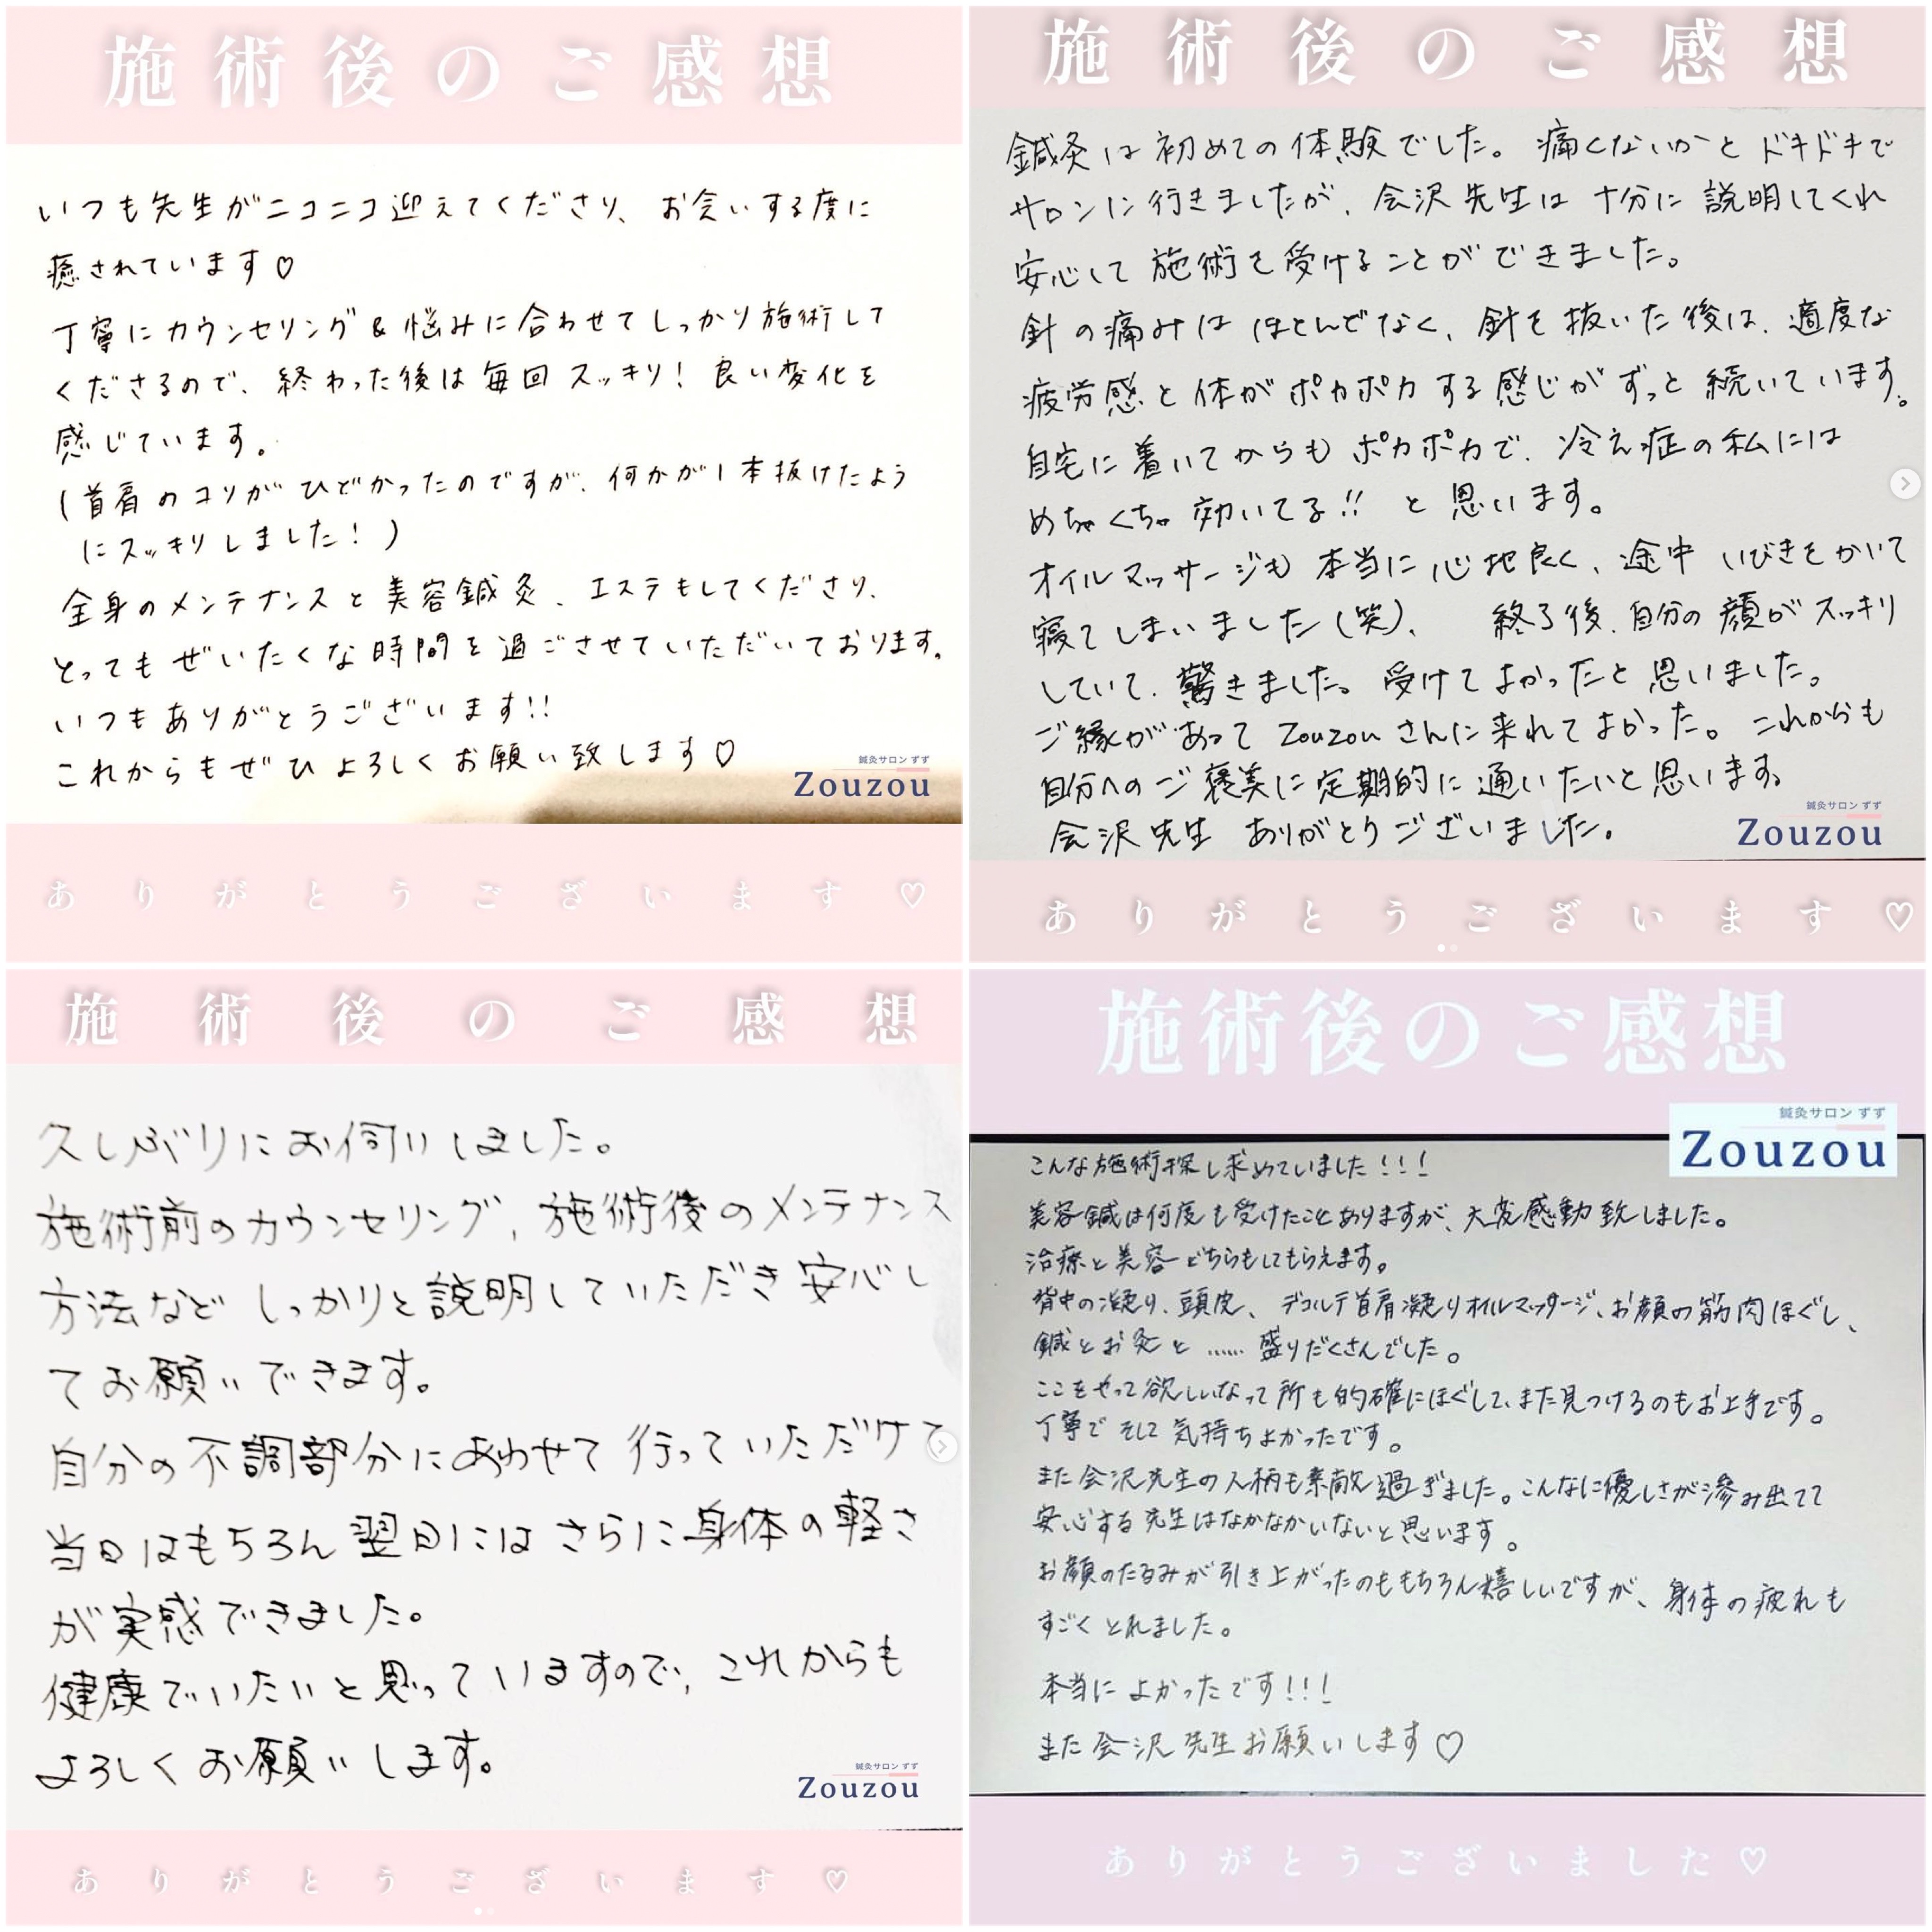 施術後のご感想
いつも先生がニコニコ迎えてくださり、お会いする度に
癒されています♡
丁寧にカウンセリング&悩みに合わせてしっかり施術して
くださるので、終わった後は毎回スッキリ！良い変化を
感じています。
(首肩のコリがひどかったのですが、何かが1本抜けたよう
にスッキリしました！)
全身のメンテナンスと美容鍼灸、エステもしてくださり、
とってもぜいたくな時間を過ごさせていただいております。
いつもありがとうございます!!
これからもぜひよろしくお願い致します♡
鍼灸サロン ずず
Zouzou
ありがとうございます♡
施術後のご感想
鍼灸は初めての体験でした。痛くないかとドキドキで
サロンに行きましたが、会沢先生は十分に説明してくれ
安心して施術を受けることができました。
針の痛みはほとんどなく、針を抜いた後は、適度な
疲労感と体がポカポカする感じがずっと続いています。
自宅に着いてからもポカポカで、冷え症の私には
めちゃくちゃ効いてる!!と思います。
オイルマッサージも本当に心地良く、途中いびきをかいて
寝てしまいました(笑)、終了後、自分の顔がスッキリ
していて、驚きました。受けてよかったと思いました。
ご縁があってZouzouさんに来れてよかった。これからも
自分へのご褒美に定期的に通いたいと思います。
会沢先生 ありがとうございました。
鍼灸サロン ずず
Zouzou
ありがとうございます♡
施術後のご感想
久しぶりにお伺いしました。
施術前のカウンセリング、施術後のメンテナンス
方法などしっかりと説明していただき安心し
てお願いできます。
自分の不調部分にあわせて行っていただけて
当日はもちろん翌日にはさらに身体の軽さ
が実感できました。
健康でいたいと思っていますので、これからも
よろしくお願いします。
鍼灸サロン ずず
Zouzou
ありがとうございます♡
施術後のご感想
鍼灸サロン ずず
Zouzou
こんな施術探し求めていました!!!
美容鍼は何度も受けたことありますが、大変感動致しました。
治療と美容どちらもしてもらえます。
背中の凝り、頭皮、デコルテ首肩凝りオイルマッサージ、お顔の筋肉ほぐし、
鍼とお灸と……盛りだくさんでした。
ここをやって欲しいなって所も的確にほぐして、また見つけるのもお上手です。
丁寧でそして気持ちよかったです。
また会沢先生の人柄も素敵過ぎました。こんなに優しさが滲み出てて
安心する先生はなかなかいないと思います。
お顔のたるみが引き上がったのももちろん嬉しいですが、身体の疲れも
すごくとれました。
本当によかったです!!!
また会沢先生お願いします♡
ありがとうございました♡